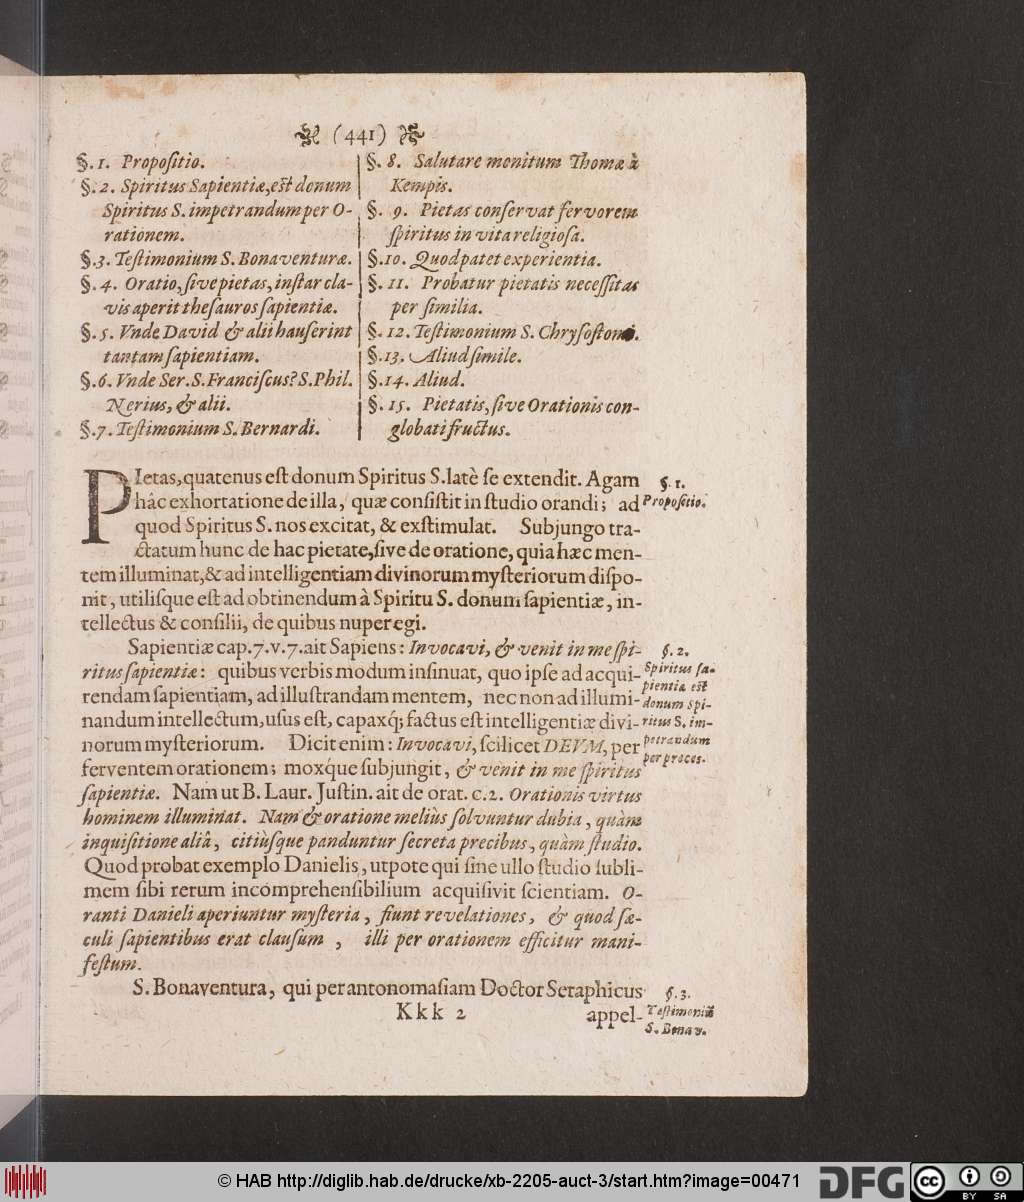 (441)
§. 1. Propoſitio.
§. 2. Spiritus Sapientiæ, eſt donum
Spiritus S. impetrandum per O-
rationem.
§. 3. Teſtimonium S. Bonaventuræ.
§. 4. Oratio, ſive pietas, inſtar cla-
vis aperit theſauros ſapientiæ.
§. 5. Vnde David & alii hauſerint
tantam ſapientiam.
§. 6. Vnde Ser. S. Franciſcus? S. Phil.
Nerius, & alii.
§. 7. Teſtimonium S. Bernardi.
§. 8. Salutare monitum Thomæ à
Kempis.
§. 9. Pietas conſervat fervorem
ſpiritus in vita religioſa.
§. 10. Quod patet experientia.
§. 11. Probatur pietatis neceſſitas
per ſimilia.
§. 12. Teſtimonium S. Chryſoſtomi.
§. 13. Aliud ſimile.
§. 14. Aliud.
§. 15. Pietatis, ſive Orationis con-
globati fructus.
PIetas, quatenus eſt donum Spiritus S. latè ſe extendit. Agam
hâc exhortatione de illa, quæ conſiſtit in ſtudio orandi; ad
quod Spiritus S. nos excitat, & exſtimulat. Subjungo tra-
ctatum hunc de hac pietate, ſive de oratione, quia hæc men-
tem illuminat, & ad intelligentiam divinorum myſteriorum diſpo-
nit, utiliſque eſt ad obtinendum à Spiritu S. donum ſapientiæ, in-
tellectus & conſilii, de quibus nuper egi.
§. 1.
Propoſitio.
Sapientiæ cap. 7. v. 7. ait Sapiens: Invocavi, & venit in me ſpi-
ritus ſapientiæ: quibus verbis modum inſinuat, quo ipſe ad acqui-
rendam ſapientiam, ad illuſtrandam mentem, nec non ad illumi-
nandum intellectum, uſus eſt, capaxq́; factus eſt intelligentiæ divi-
norum myſteriorum. Dicit enim: Invocavi, ſcilicet DEVM, per
ferventem orationem; moxq́ue ſubjungit, & venit in me ſpiritus
ſapientiæ. Nam ut B. Laur. Juſtin. ait de orat. c. 2. Orationis virtus
hominem illuminat. Nam & oratione meliùs ſolvuntur dubia, quàm
inquiſitione aliâ, citiùſque panduntur ſecreta precibus, quàm ſtudio.
Quod probat exemplo Danielis, utpote qui ſine ullo ſtudio ſubli-
mem ſibi rerum incomprehenſibilium acquiſivit ſcientiam. O-
ranti Danieli aperiuntur myſteria, fiunt revelationes, & quod ſæ-
culi ſapientibus erat clauſum, illi per orationem efficitur mani-
feſtum.
§. 2.
Spiritus ſa-
pientiæ eſt
donum Spi-
ritus S. im-
petrandum
per preces.
S. Bonaventura, qui per antonomaſiam Doctor Seraphicus
§. 3.
Teſtimoniũ
S. Bonav.
Kkk 2
appel-
© HAB http://diglib.hab.de/drucke/xb-2205-auct-3/start.htm?image=00471
DFG
cc
BY SA